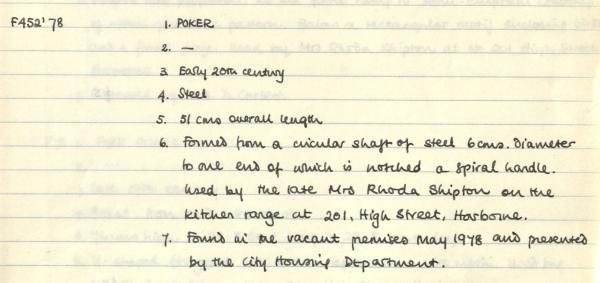 F452'78 1. POKER
2. —
3. Early 20th century
4. Steel
5. 51 cms overall length
6. Formed from a circular shaft of steel 6cms. diameter
to one end of which is notched a spiral handle.
Used by the late Mrs Rhoda Shipton on the
kitchen range at 201, High Street, Harborne.
7. Found in the vacant premises May 1978 and presented
by the City Housing Department.